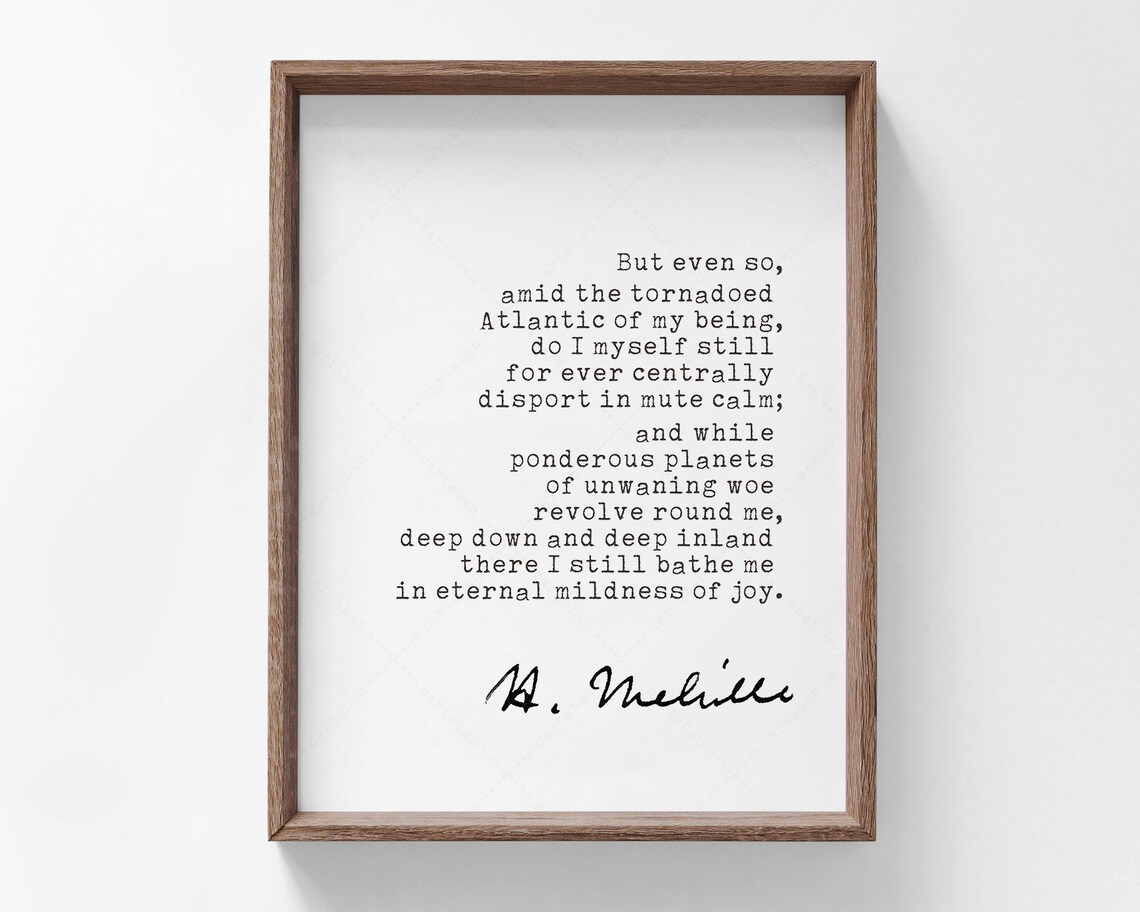 But even so,
amid the tornadoed
Atlantic of my being,
do I myself still
for ever centrally
disport in mute calm;
and while
ponderous planets
of unwaning woe
revolve round me,
deep down and deep inland
there I still bathe me
in eternal mildness of joy.
H. Melville